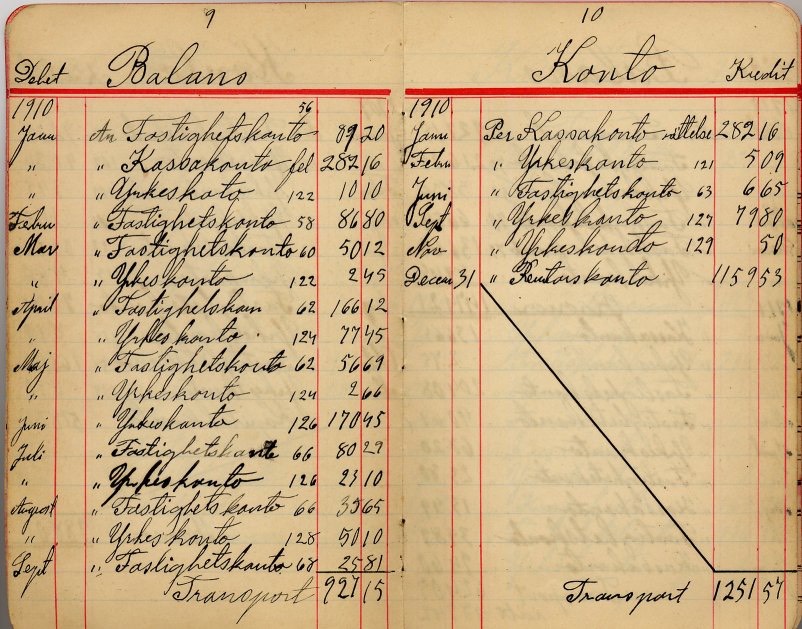 9
Debet Balans
1910 56
Janu An Fastighetskonto 89 20
" " Kassakonto fel 282 16
" " Yrkeskoto 122 10 10
Febru " Fastighetskonto 58 86 80
Mar " Fastighetskonto 60 50 12
" " Yrkeskonto 122 2 45
April " Fastighetskon 62 166 12
" " Yrkeskonto 124 77 45
Maj " Fastighetskonto 62 56 69
" " Yrkeskonto 124 2 66
Juni " Yrkeskanto 126 170 45
Juli " Fastighetskanto 66 80 29
" " Yrkeskonto 126 23 10
August " Fastighetskonto 66 35 65
" " Yrkeskonto 128 50 10
Sept " Fastighetskanto 68 25 81
Transport 927 15
10
Konto Kredit
1910
Janu Per Kassakonto 282 16
Febru " Yrkeskanto 121 5 09
Juni " Fastighetskonto 63 6 65
Sept " Yrkeskanto 127 79 80
Nov " Yrkeskonto 129 50
Decem 31 " 1159 53
Transport 1251 57